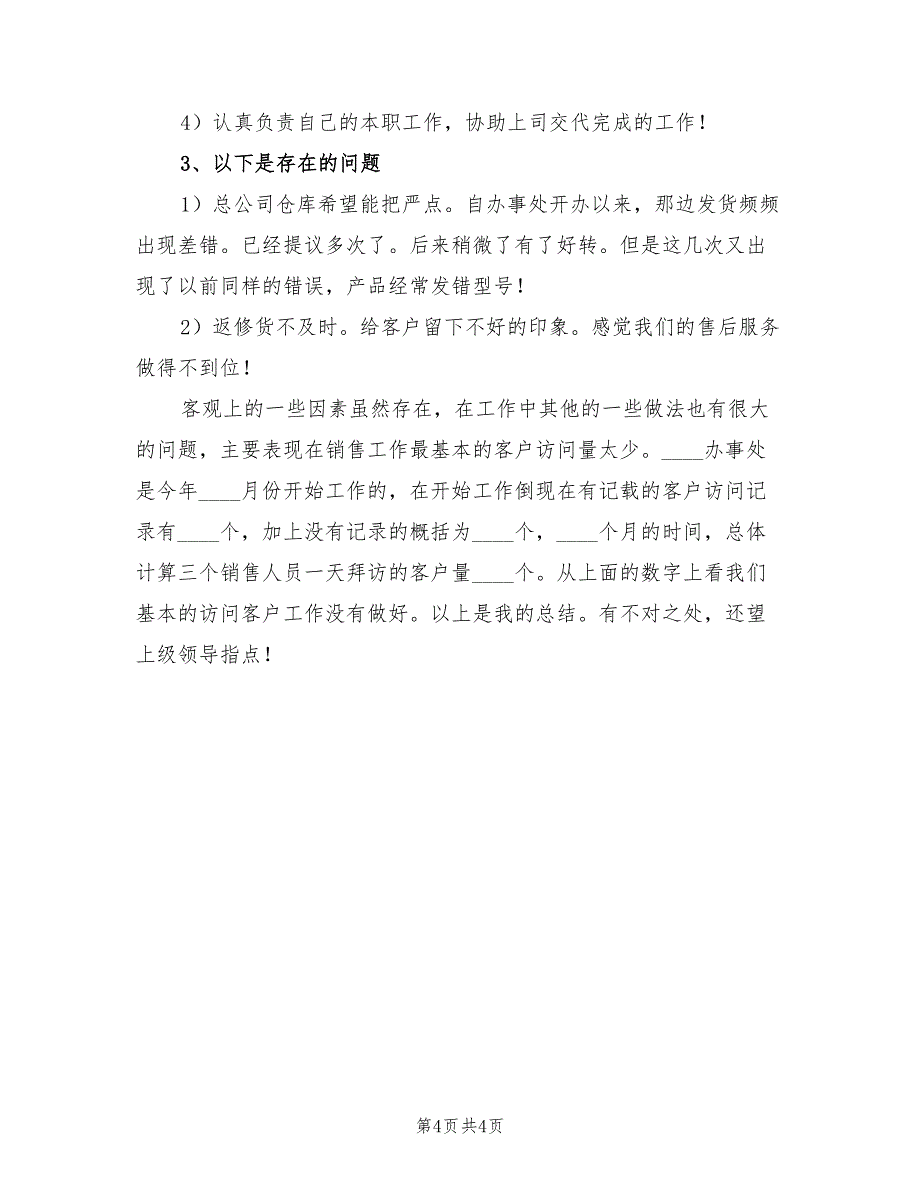 4）认真负责自己的本职工作，协助上司交代完成的工作！
3、以下是存在的问题
1）总公司仓库希望能把严点。自办事处开办以来，那边发货频频
出现差错。已经提议多次了。后来稍微了有了好转。但是这几次又出
现了以前同样的错误，产品经常发错型号！
2）返修货不及时。给客户留下不好的印象。感觉我们的售后服务
做得不到位！
客观上的一些因素虽然存在，在工作中其他的一些做法也有很大
的问题，主要表现在销售工作最基本的客户访问量太少。____办事处
是今年____月份开始工作的，在开始工作倒现在有记载的客户访问记
录有____个，加上没有记录的概括为____个，____个月的时间，总体
计算三个销售人员一天拜访的客户量____个。从上面的数字上看我们
基本的访问客户工作没有做好。以上是我的总结。有不对之处，还望
上级领导指点！
第4页 共4页